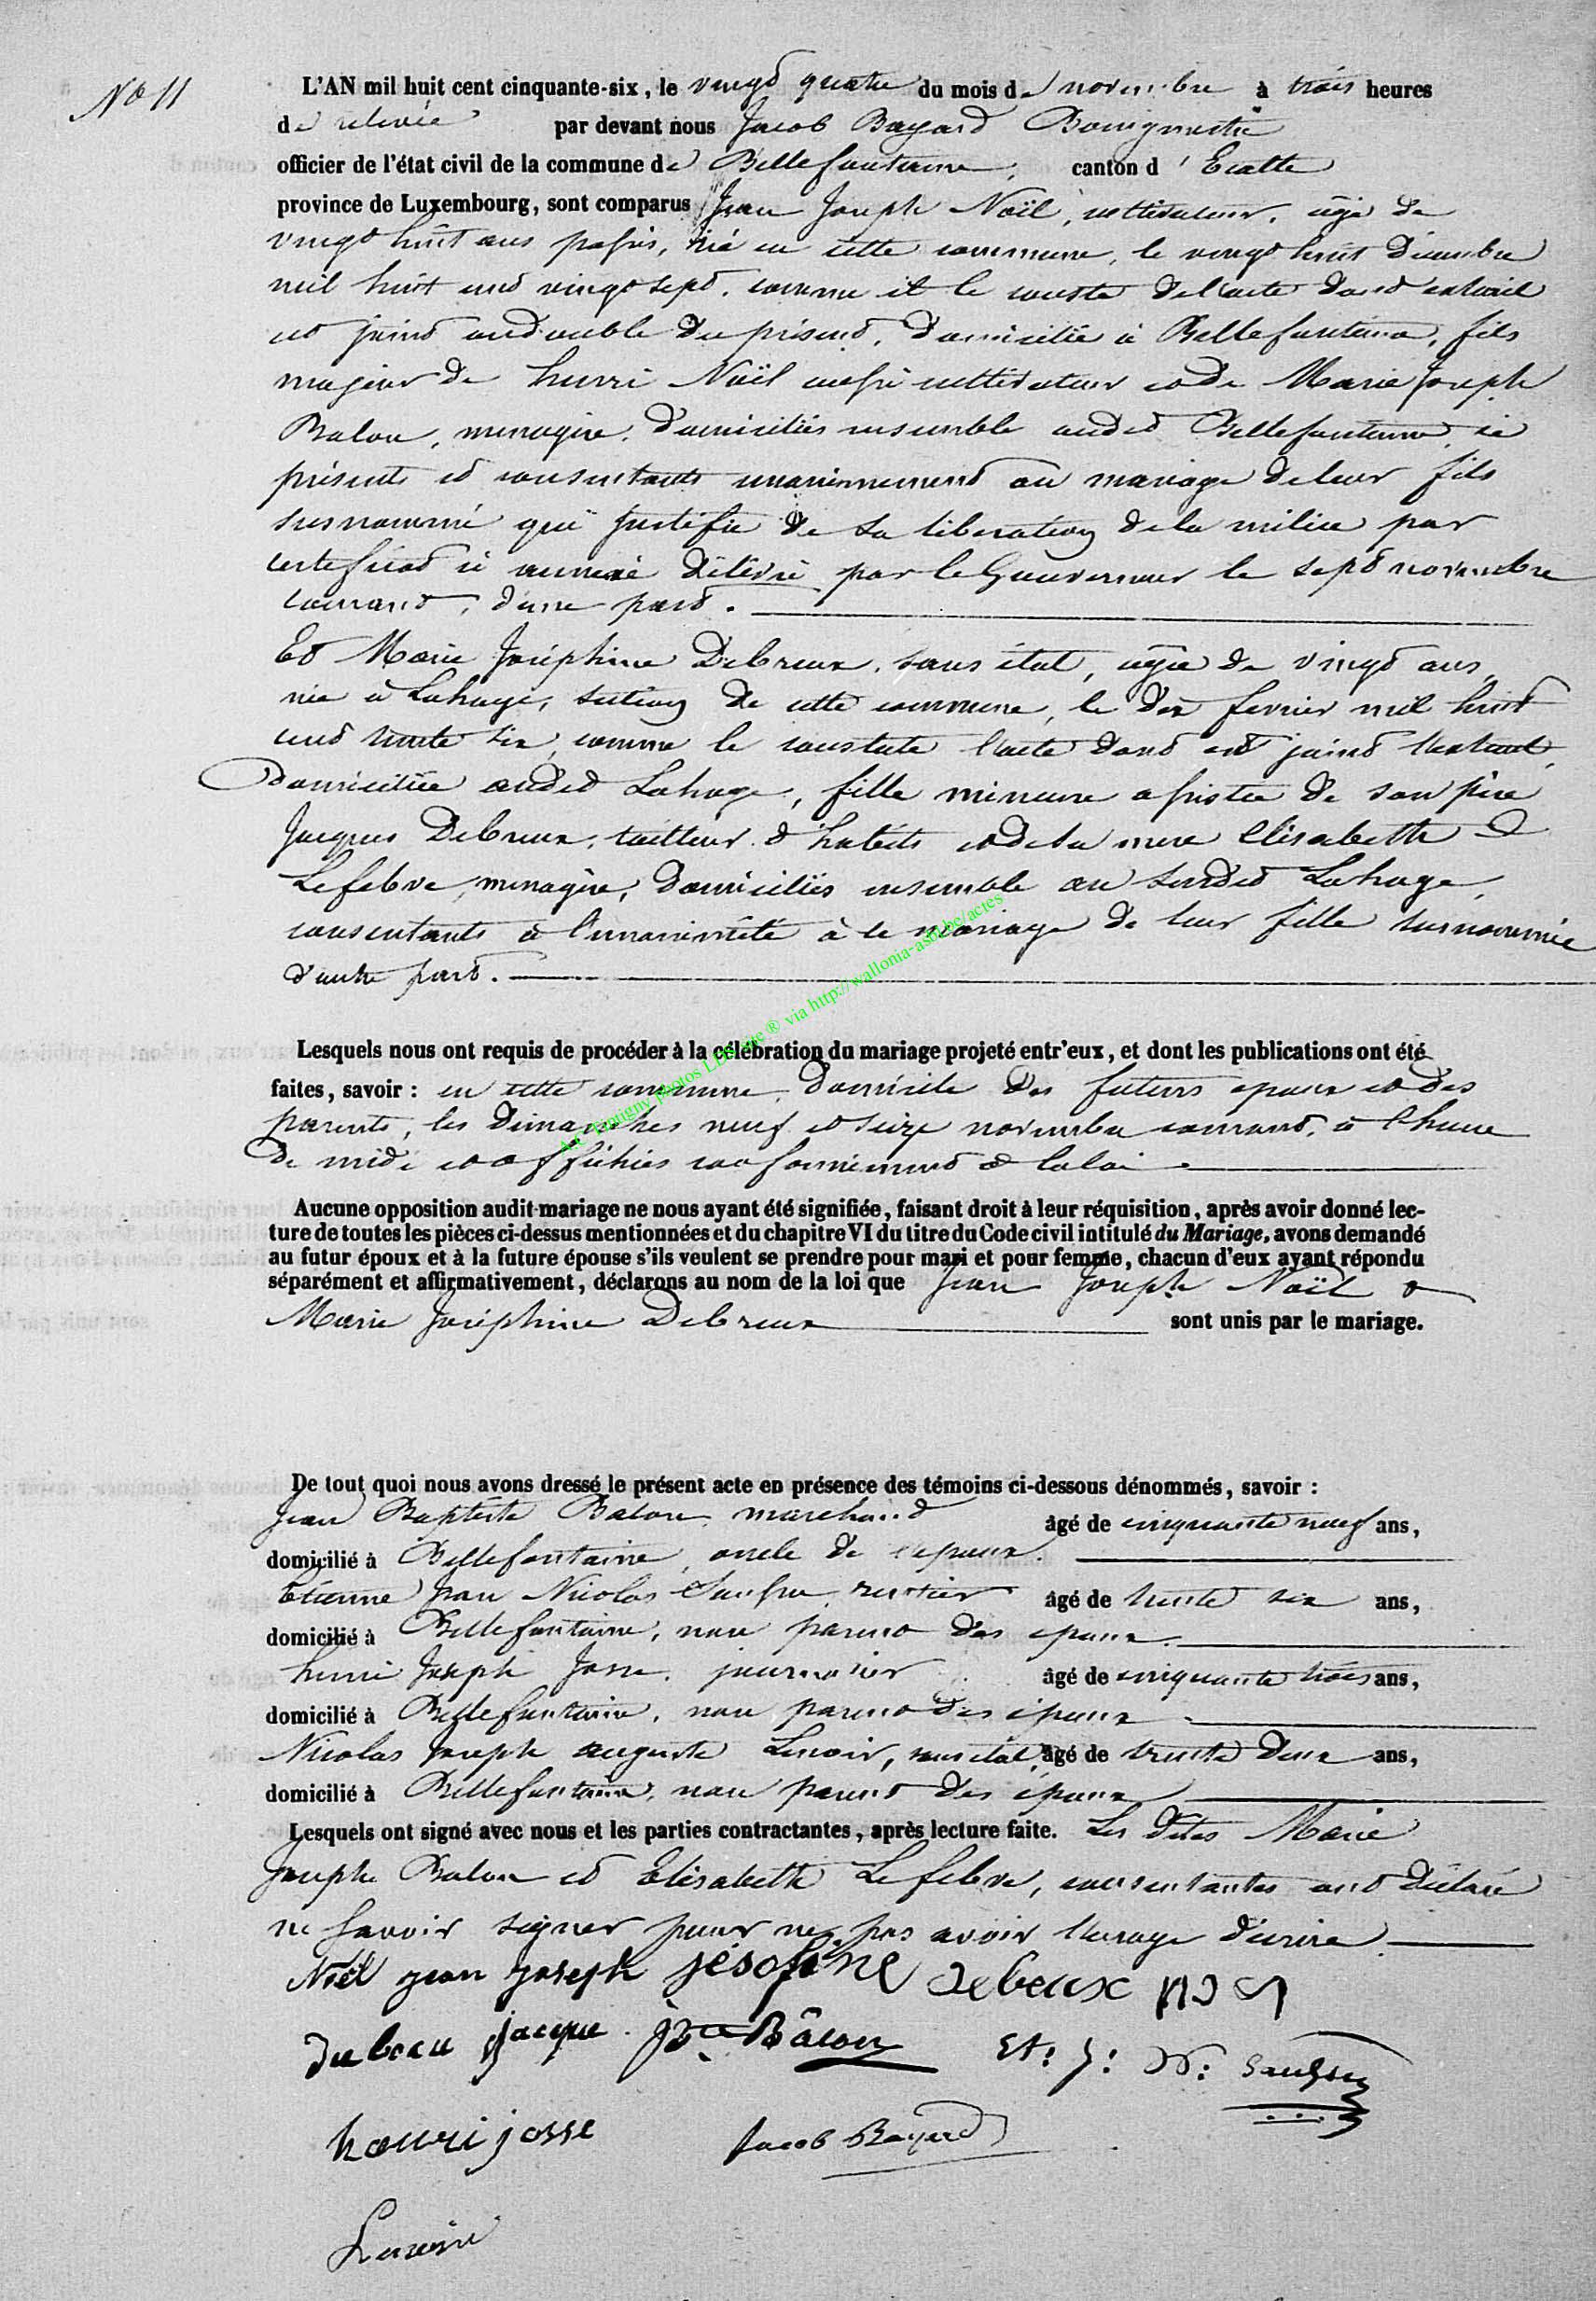 No 11
L'AN mil huit cent cinquante-six, le vingt quatre du mois de novembre à trois heures
de relevée par devant nous Jacob Bayard Bourgmestre
officier de l'état civil de la commune de Bellefontaine, canton d'Etalle
province de Luxembourg, sont comparus Jean Joseph Noël, cultivateur, âgé de
vingt huit ans passés, né en cette commune, le vingt huit décembre
mil huit cent vingt sept, comme il le conste de l'acte dont extrait
est joint au double du présent, domicilié à Bellefontaine, fils
majeur de henri Noël aussi cultivateur et de Marie Joseph
Balon, menagère, domiciliés ensemble audit Bellefontaine, ici
présents et consentants unanimement au mariage de leur fils
susnommé qui justifie de sa liberation de la milice par
certificat ci annexé délivré par le Gouverneur le sept novembre
courant, d'une part.
Et Marie Joséphine Debreux, sans état, agée de vingt ans,
née à Lahage, section de cette commune, le dix fevrier mil huit
cent trente six, comme le constate l'acte dont est joint l'extrait,
Domiciliée audit Lahage, fille mineure assistée de son père
Jacques Debreux, tailleur d'habits et de sa mere Elisabeth
Lefebvre, menagère, domiciliés ensemble au susdit Lahage,
consentants à l'unanimité à le mariage de leur fille surnommée
d'autre part.
Lesquels nous ont requis de procéder à la célébration du mariage projeté entr'eux, et dont les publications ont été
faites, savoir : en cette commune, domicile des futurs epoux et des
parents, les dimanches neuf et seize novembre courant, à l'heure
de midi et affichées conformément à la loi.
Aucune opposition audit mariage ne nous ayant été signifiée, faisant droit à leur réquisition, après avoir donné lec-
ture de toutes les pièces ci-dessus mentionnées et du chapitre VI du titre du Code civil intitulé du Mariage, avons demandé
au futur époux et à la future épouse s'ils veulent se prendre pour mari et pour femme, chacun d'eux ayant répondu
séparément et affirmativement, déclarons au nom de la loi que Jean Joseph Noël &
Marie Joséphine Debreux sont unis par le mariage.
De tout quoi nous avons dressé le présent acte en présence des témoins ci-dessous dénommés, savoir :
Jean Baptiste Balon, marchand âgé de cinquante neuf ans,
domicilié à Bellefontaine, oncle de l'epoux.
Etienne Jean Nicolas rentier âgé de trente six ans,
domicilié à Bellefontaine, non parent des epoux.
henri Joseph Josse, journalier âgé de cinquante trois ans,
domicilié à Bellefontaine, non parent des époux.
Nicolas Joseph auguste Lenoir, sans état, âgé de trente deux ans,
domicilié à Bellefontaine, non parent des époux
Lesquels ont signé avec nous et les parties contractantes, après lecture faite. Les dites Marie
Joseph Balon et Elisabeth Lefebvre, consentantes ont déclaré
ne savoir signer pour ne pas avoir l'usage d'écrire.
Noël jean joseph jésofine debeux
dubeau jacque. Jbte Bâlon Et: J: N:
henri josse Jacob Bayard
Lenoir
A.C. Tintigny photos LDS site ® via http://wallonia-asbl.be/actes